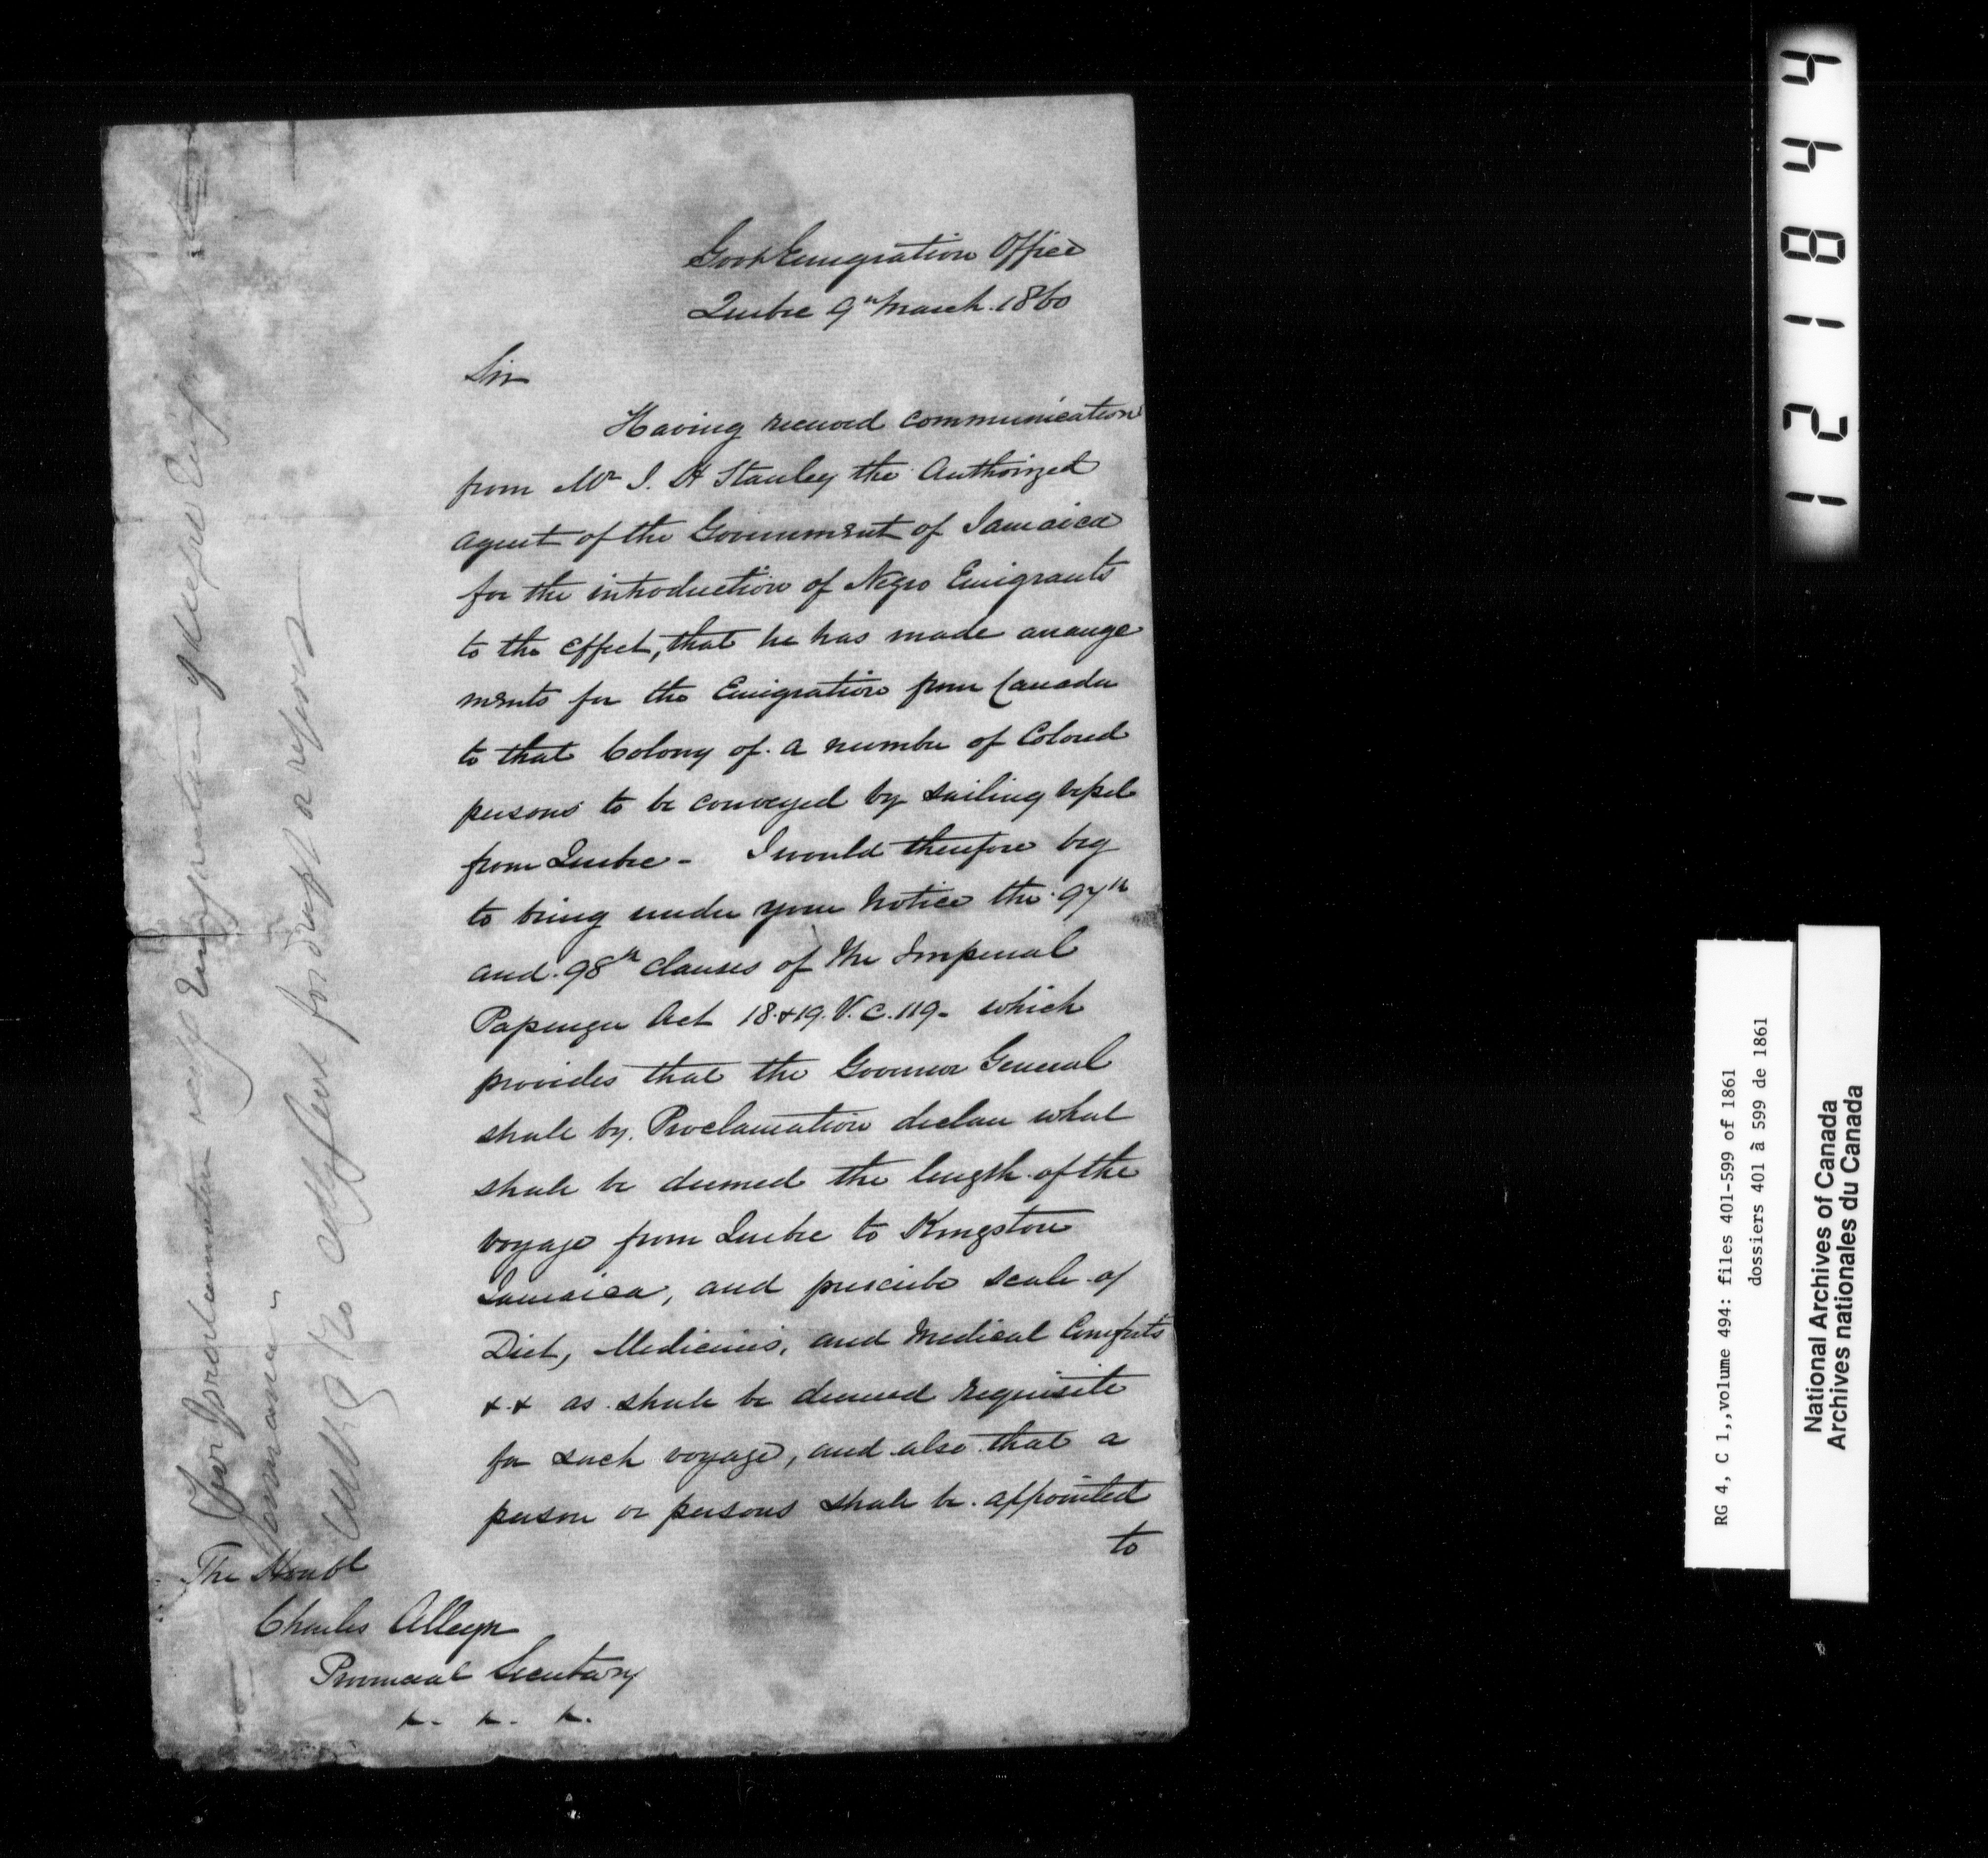 Govt Emigration Office
Quebec 9th March. 1860
Sir
Having received communication
from Mr J. H Stanley the Authorized
agent of the Government of Jamaica
for the introduction of Negro Emigrants
to the effect, that he has made arrange
ments for the Emigration from Canada
to that Colony of a number of Colored
persons to be conveyed by sailing vessel
from Quebec - I would therefore beg
to bring under your Notice the 97th
and 98th clauses of the Imperial
Passenger Act 18.&19. V. C. 119- which
provides that the Governor General
shall by Proclamation declare what
shall be deemed the length of the
voyage from Quebec to Kingston
Jamaica, and prescribe scale of
Diet, Medicines, and Medical Comforts
&.& as shall be deemed requisite
for such voyage, and also that a
person or persons shall be appointed
to
The Honbl
Charles Alleyn
Provincial Secretary
Emigration of Negro
Jamaica -
for draft & report
1 2 1 8 4 4
RG 4, C 1,,volume 494: files 401-599 of 1861
dossiers 401 à 599 de 1861
National Archives of Canada
Archives nationales du Canada